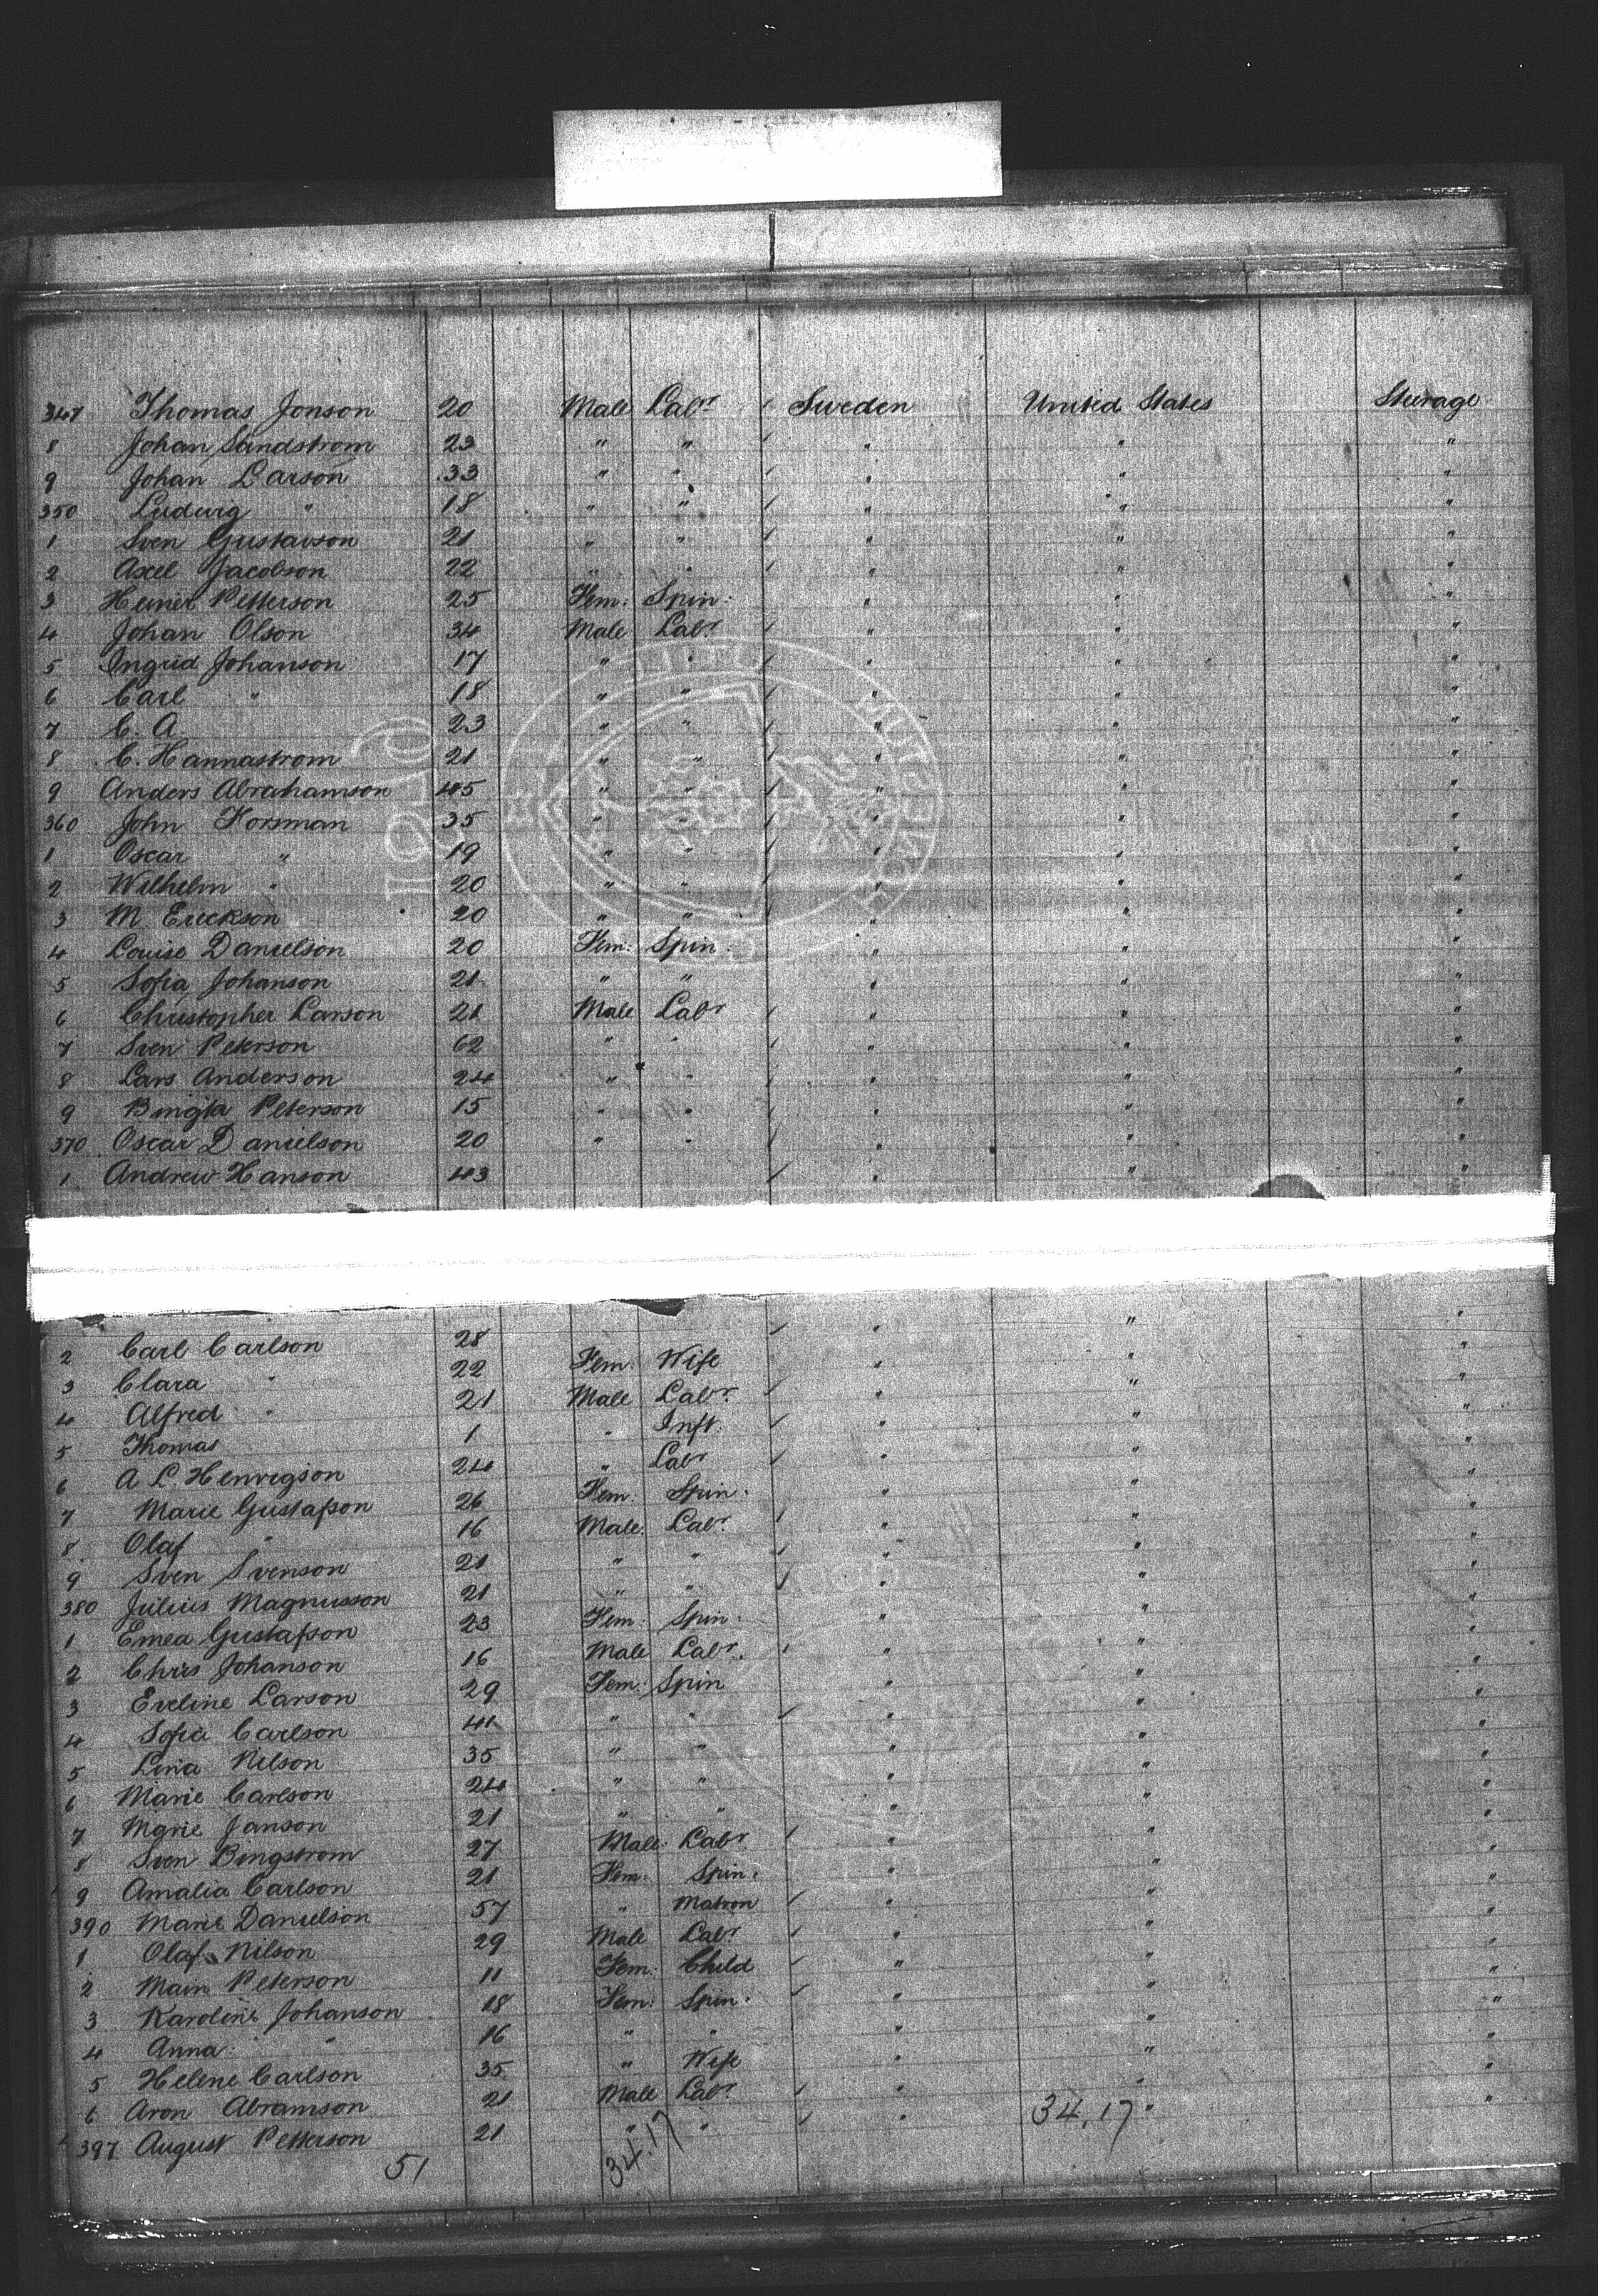 347 Thomas Jonson 20 Male Labr Sweden United States Steerage
8 Johan Sandstrom 23 " " " " "
9 Johan Larson 33 " " " " "
350 Ludwig " 18 " " " " "
1 Sven Gustavson 21 " " " " "
2 Axel Jacobson 22 " " " " "
3 Heiner Petterson 25 Fem: Spin: " " "
4 Johan Olson 34 Male Labr " " "
5 Ingrid Johanson 17 " " " " "
6 Carl " 18 " " " " "
7 C. A 23 " " " " "
8 C. Hannastrom 21 " " " " "
9 Anders Abrahamson 45 " " " " "
360 John Forsman 35 " " " " "
1 Oscar " 19 " " " " "
2 Wilhelm " 20 " " " " "
3 M. Erickson 20 " " " " "
4 Louise Danielson 20 Fem: Spin: " " "
5 Sofia Johanson 21 " " " " "
6 Christopher Larson 21 Male Labr " " "
7 Sven Peterson 62 " " " " "
8 Lars Anderson 24 " " " " "
9 Bingta Peterson 15 " " " " "
370 Oscar Danielson 20 " " " " "
1 Andrew Hanson 43 " " "
2 Carl Carlson 28 " " "
3 Clara " 22 Fem: Wife " " "
4 Alfred " 21 Male Labr " " "
5 Thomas 1 " Inft. " " "
6 A L. Henrigson 24 " Labr " " "
7 Marie Gustafson 26 Fem: Spin: " " "
8 Olaf " 16 Male: Labr " " "
9 Sven Svenson 21 " " " " "
380 Julius Magnusson 21 " " " " "
1 Emea Gustafson 23 Fem: Spin: " " "
2 Chris Johanson 16 Male Labr. " " "
3 Eveline Larson 29 Fem: Spin " " "
4 Sofia Carlson 41 " " " " "
5 Lina Nilson 35 " " " " "
6 Marie Carlson 24 " " " " "
7 Marie Janson 21 " " " " "
8 Sven Bingstrom 27 Male Labr " " "
9 Amalia Carlson 21 Fem: Spin: " " "
390 Marie Danielson 57 " Matron " " "
1 Olaf Nilson 29 Male Labr " " "
2 Main Peterson 11 Fem: Child " " "
3 Karoline Johanson 18 Fem: Spin: " " "
4 Anna " 16 " " " " "
5 Helene Carlson 35 " Wife " " "
6 Aron Abramson 21 Male Labr " " "
397 August Petterson 21 " " " " "
51 34.17 34.17